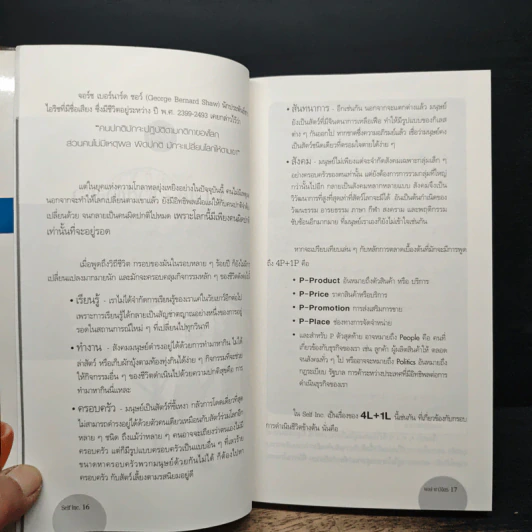 จอร์ช เบอร์นาร์ด ชอว์ (George Bernard Shaw) นักประพันธ์ชาว
ไอริชที่มีชื่อเสียง ซึ่งมีชีวิตอยู่ระหว่าง ปี พ.ศ. 2399-2493 เคยกล่าวไว้ว่า
"คนปกติมักจะปฏิบัติตามกติกาของโลก
ส่วนคนไม่มีเหตุผล ผิดปกติ มักจะเปลี่ยนโลกให้ตามเขา"
แต่ในยุคแห่งความโกลาหลยุ่งเหยิงอย่างในปัจจุบันนี้
นอกจากจะทำให้โลกเปลี่ยนตามเขาแล้ว ยังมีอิทธิพลเหนือ
เปลี่ยนด้วย จนกลายเป็นคนผิดปกติไปหมด เพราะโลกนี้มีเพียงคนผิดปกติ
เท่านั้นที่จะอยู่รอด
เมื่อพูดถึงวิถีชีวิต กรอบของมันในรอบหลาย ๆ ร้อยปี ก็ยังไม่
เปลี่ยนแปลงมากมายนัก และมักจะครอบคลุมกิจกรรมหลัก ๆ ของชีวิต
• เรียนรู้ - เราไม่ได้จำกัดการเรียนรู้ของเราแค่ในวัยเยาว์อีกต่อไป
เพราะการเรียนรู้ได้กลายเป็นสัญชาตญาณอย่างหนึ่งของการอยู่
รอดในสถานการณ์ใหม่ ๆ ที่เปลี่ยนไปทุกนาที
• ทำงาน - สังคมมนุษย์ดำรงอยู่ได้ด้วยการทำมาหากิน ไม่ได้
ล่าสัตว์ หรือเก็บผักบุ้งตามท้องทุ่งกินได้ง่าย ๆ กิจกรรมที่จะช่วย
ให้กิจกรรมอื่น ๆ ของชีวิตดำเนินไปด้วยความปกติสุขคือ การ
ทำมาหากินนี่แหละ
• ครอบครัว - มนุษย์เป็นสัตว์ที่ขี้เหงา กลัวการโดดเดี่ยวที่สุด
ไม่สามารถดำรงอยู่ได้ด้วยตัวคนเดียวเหมือนกับสัตว์ร่วมโลกอีก
หลาย ๆ ชนิด ถึงแม้ว่าหลาย ๆ คนอาจจะเถียงว่าตนเองไม่มี
ครอบครัว แต่ก็มีรูปแบบครอบครัวเป็นแบบอื่น ๆ
ขนาดหาครอบครัวพวกมนุษย์ด้วยกันไม่ได้ ก็ต้องไปหา
ครอบครัว กับสัตว์เลี้ยงตามรสนิยมอยู่ดี
Self Inc. 16
• สันทนาการ - อีกเช่นกัน นอกจากจะแตกต่างแล้ว มนุษย์
ยังเป็นสัตว์ที่มีจินตนาการเหลือเฟือ ทำให้มีรูปแบบของกิเลส
ต่าง ๆ กันออกไป
เป็นสัตว์ชนิดเดียวที่ตรอมใจตายได้ง่าย ๆ
• สังคม - มนุษย์ไม่เพียงแต่จะจำกัดสังคมเฉพาะกลุ่มเล็ก ๆ
อย่างครอบครัวของตนเท่านั้น แต่ยังต้องการการรวมกลุ่มที่ใหญ่
กว่านั้นไปอีก กลายเป็นสังคมหลากหลายแบบ สังคมจึงเป็น
วิวัฒนาการที่สูงที่สุดเท่าที่สัตว์โลกจะมีได้ อันเป็นต้นกำเนิดของ
วัฒนธรรม อารยธรรม ภาษา กีฬา สงคราม และพฤติกรรม
ซับซ้อนอีกมากมาย ที่มนุษย์เองก็ยังไม่เข้าใจเช่นกัน
หากจะเปรียบเทียบเล่น ๆ กับหลักการตลาดเบื้องต้นที่มักจะมีการพูด
ถึง 4P+1P คือ
• P-Product อันหมายถึงตัวสินค้า หรือ บริการ
• P-Price ราคาสินค้าหรือบริการ
• P-Promotion การส่งเสริมการขาย
• P-Place ช่องทางการจัดจำหน่าย
• และสำหรับ P ตัวสุดท้าย อาจหมายถึง People คือ คนที่
เกี่ยวข้องกับธุรกิจของเรา เช่น ลูกค้า ผู้ผลิตสินค้าให้ ตลอด
จนสังคมทั่ว ๆ ไป หรืออาจจะหมายถึง Politics อันหมายถึง
กฎระเบียบ รัฐบาล การค้าระหว่างประเทศที่มีอิทธิพลต่อการ
ดำเนินธุรกิจของเรา
ใน Self Inc. เป็นเรื่องของ 4L+1L นี้เช่นกัน ที่เกี่ยวข้องกับกรอบ
การดำเนินชีวิตข้างต้น นั่นคือ
17